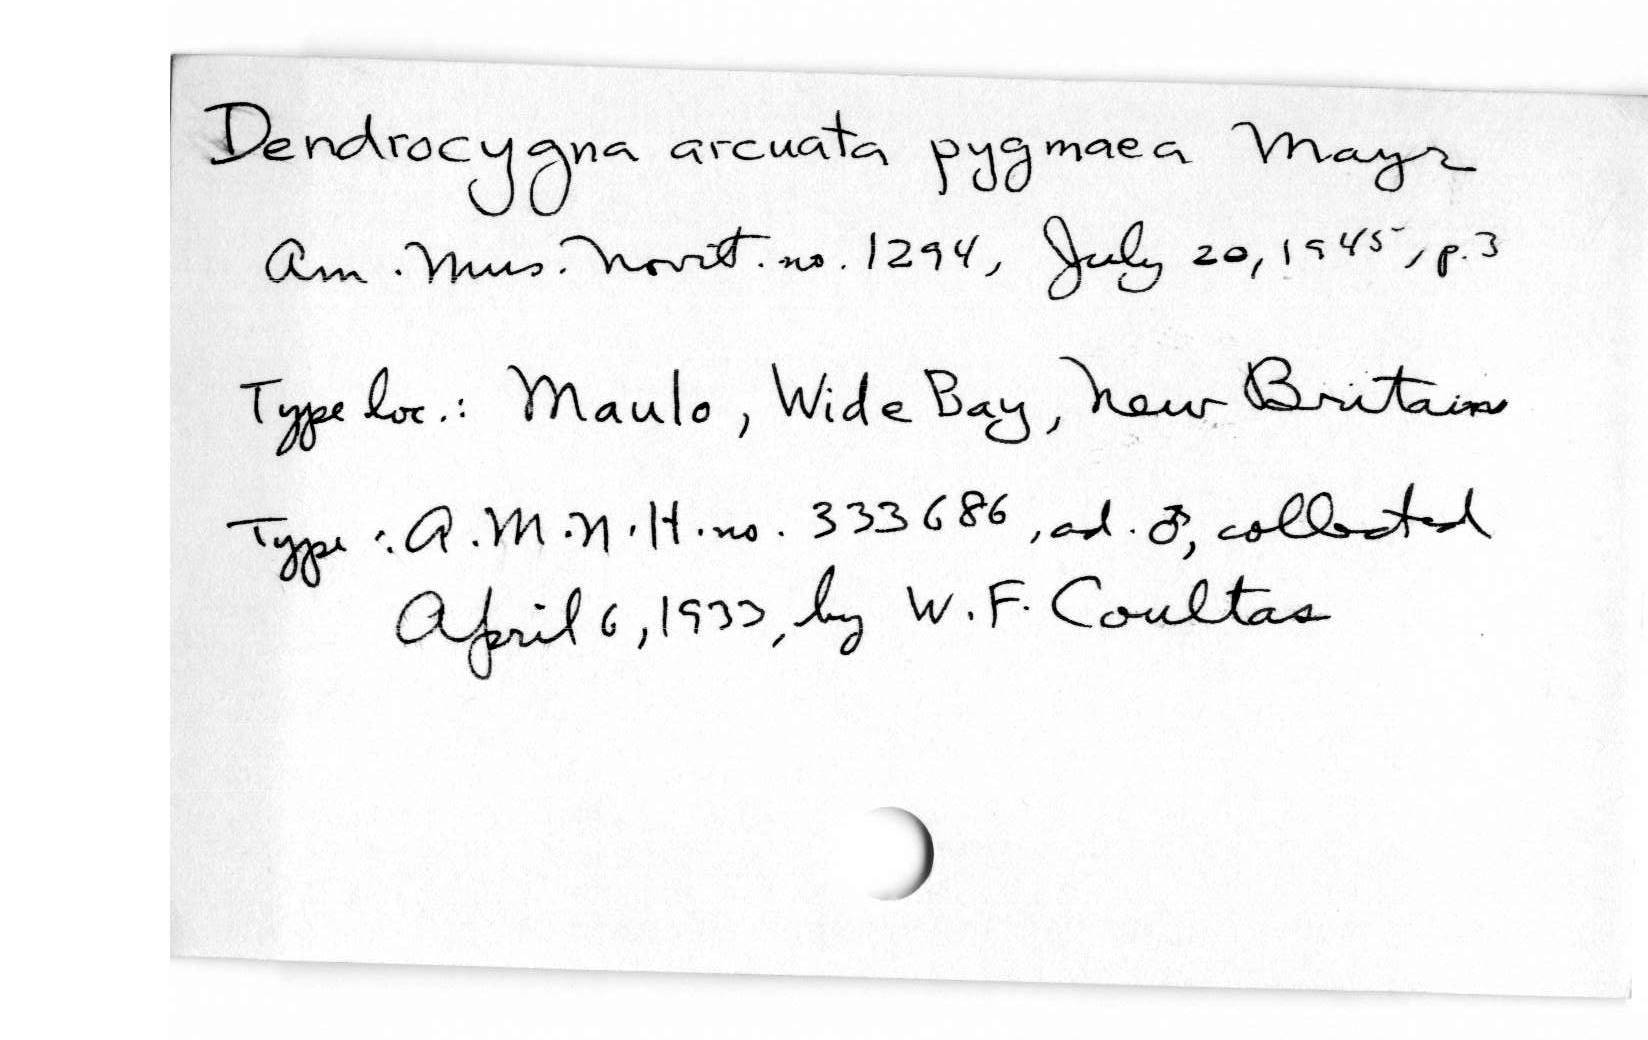 Dendrocygna arcuata pygmaea Mayr
Am. Mus. Novit. no. 1294, July 20, 1945, p. 3
Type loc.: Maulo, Wide Bay, New Britain
Type: A.M.N.H. no. 333686, ad. ♂, collected
April 6, 1933, by W. F. Coultas